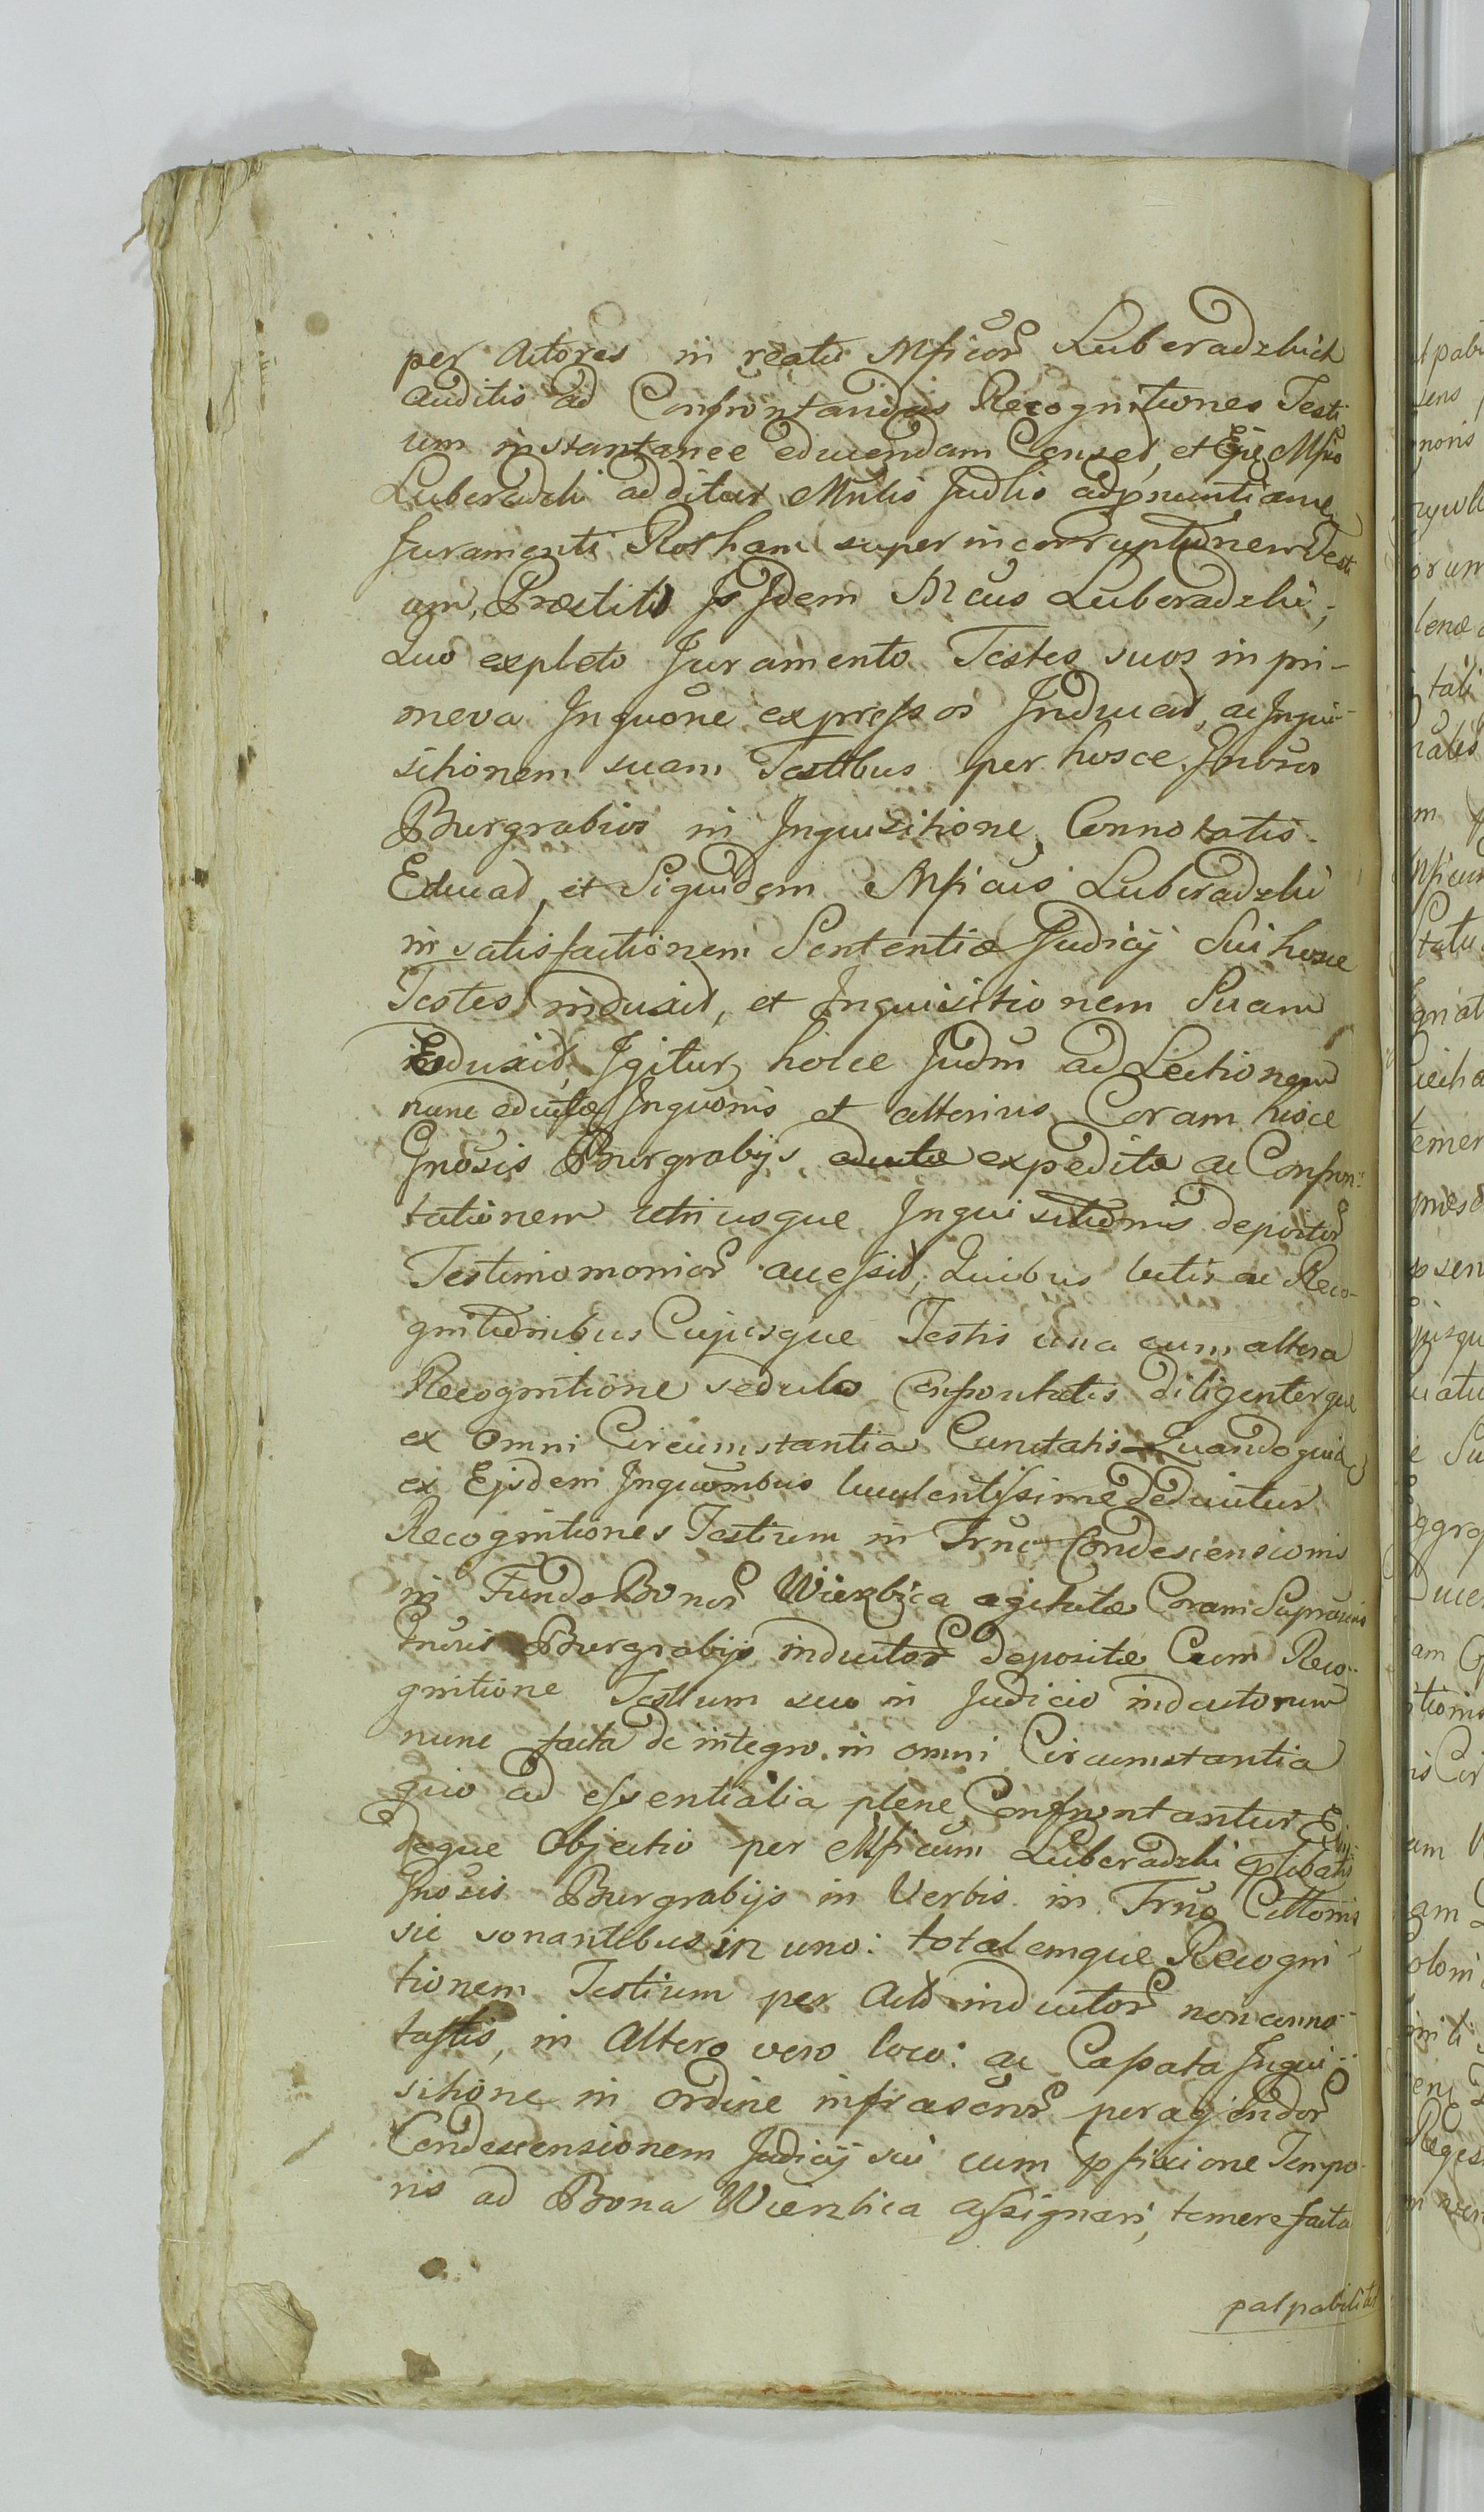 per Actores in reatu Mficor Luberadzkich
auditis ad Confrontandas Recognitiones Testi
um instantanee educendam Censet, et Ejus Mfico
Luberadzki additur Mnlis Judlis adpnuntiame
Juramenti Rotham super incorruptionem Testi
um, Præstitit Is Idem Mcus Luberadzki,
Quo expleto Juramento Testes suos in pri-
meva Inquone expressos Inducat, ac Inqui-
sitionem suam Testibus per hosce Gnosos
Burgrabios in Inquisitione Connotatis
Educat, et Siquidem Mficus Luberadzki
in satisfactionem Sententiæ Judicij Sui hosce
Testes induxit, et Inquisitionem Suam
Eduxit, Igitur hocce Judm ad Lectionem
nunc eductæ Inquonis et alterius Coram hisce
Gnosis Burgrabijs expeditæ ac Confron-
tationem utriusque Inquisitionis depositor
Testimomonior accessit, Quibus lectis ac Reco-
gnitionibus Cujusque Testis una cum altera
Recognitione sedulo Confrontatis diligenterque
ex omni Circumstantia Cunctatis Quandoquid
ex Ejsdem Inquonibus luculentissime deducitur
Recognitiones Testium in Trno Condescensionis
in Fundo Bonor Wierzbica agitatæ Coram Suprascris
Gnosis Burgrabijs inductor depositæ Cum Reco-
gnitione Testium suo in Judicio inductorum
nunc facta de integro in omni Circumstantia
quo ad essentialia plene Confrontantur
deque Objectio per Mficum Luberadzki
Gnosis Burgrabijs in Verbis in Trno Cittonis
sic sonantibus in uno: totalemque Recogni-
tionem Testium per Act inductor non conno-
tastis, in Altero vero loco: ac Capata Inqui-
sitione in ordine infrascror peragendor
Condescensionem Judicij sui cum pfixione Tempo-
ris ad Bona Wierzbica assignari, temere facta
palpabilitat